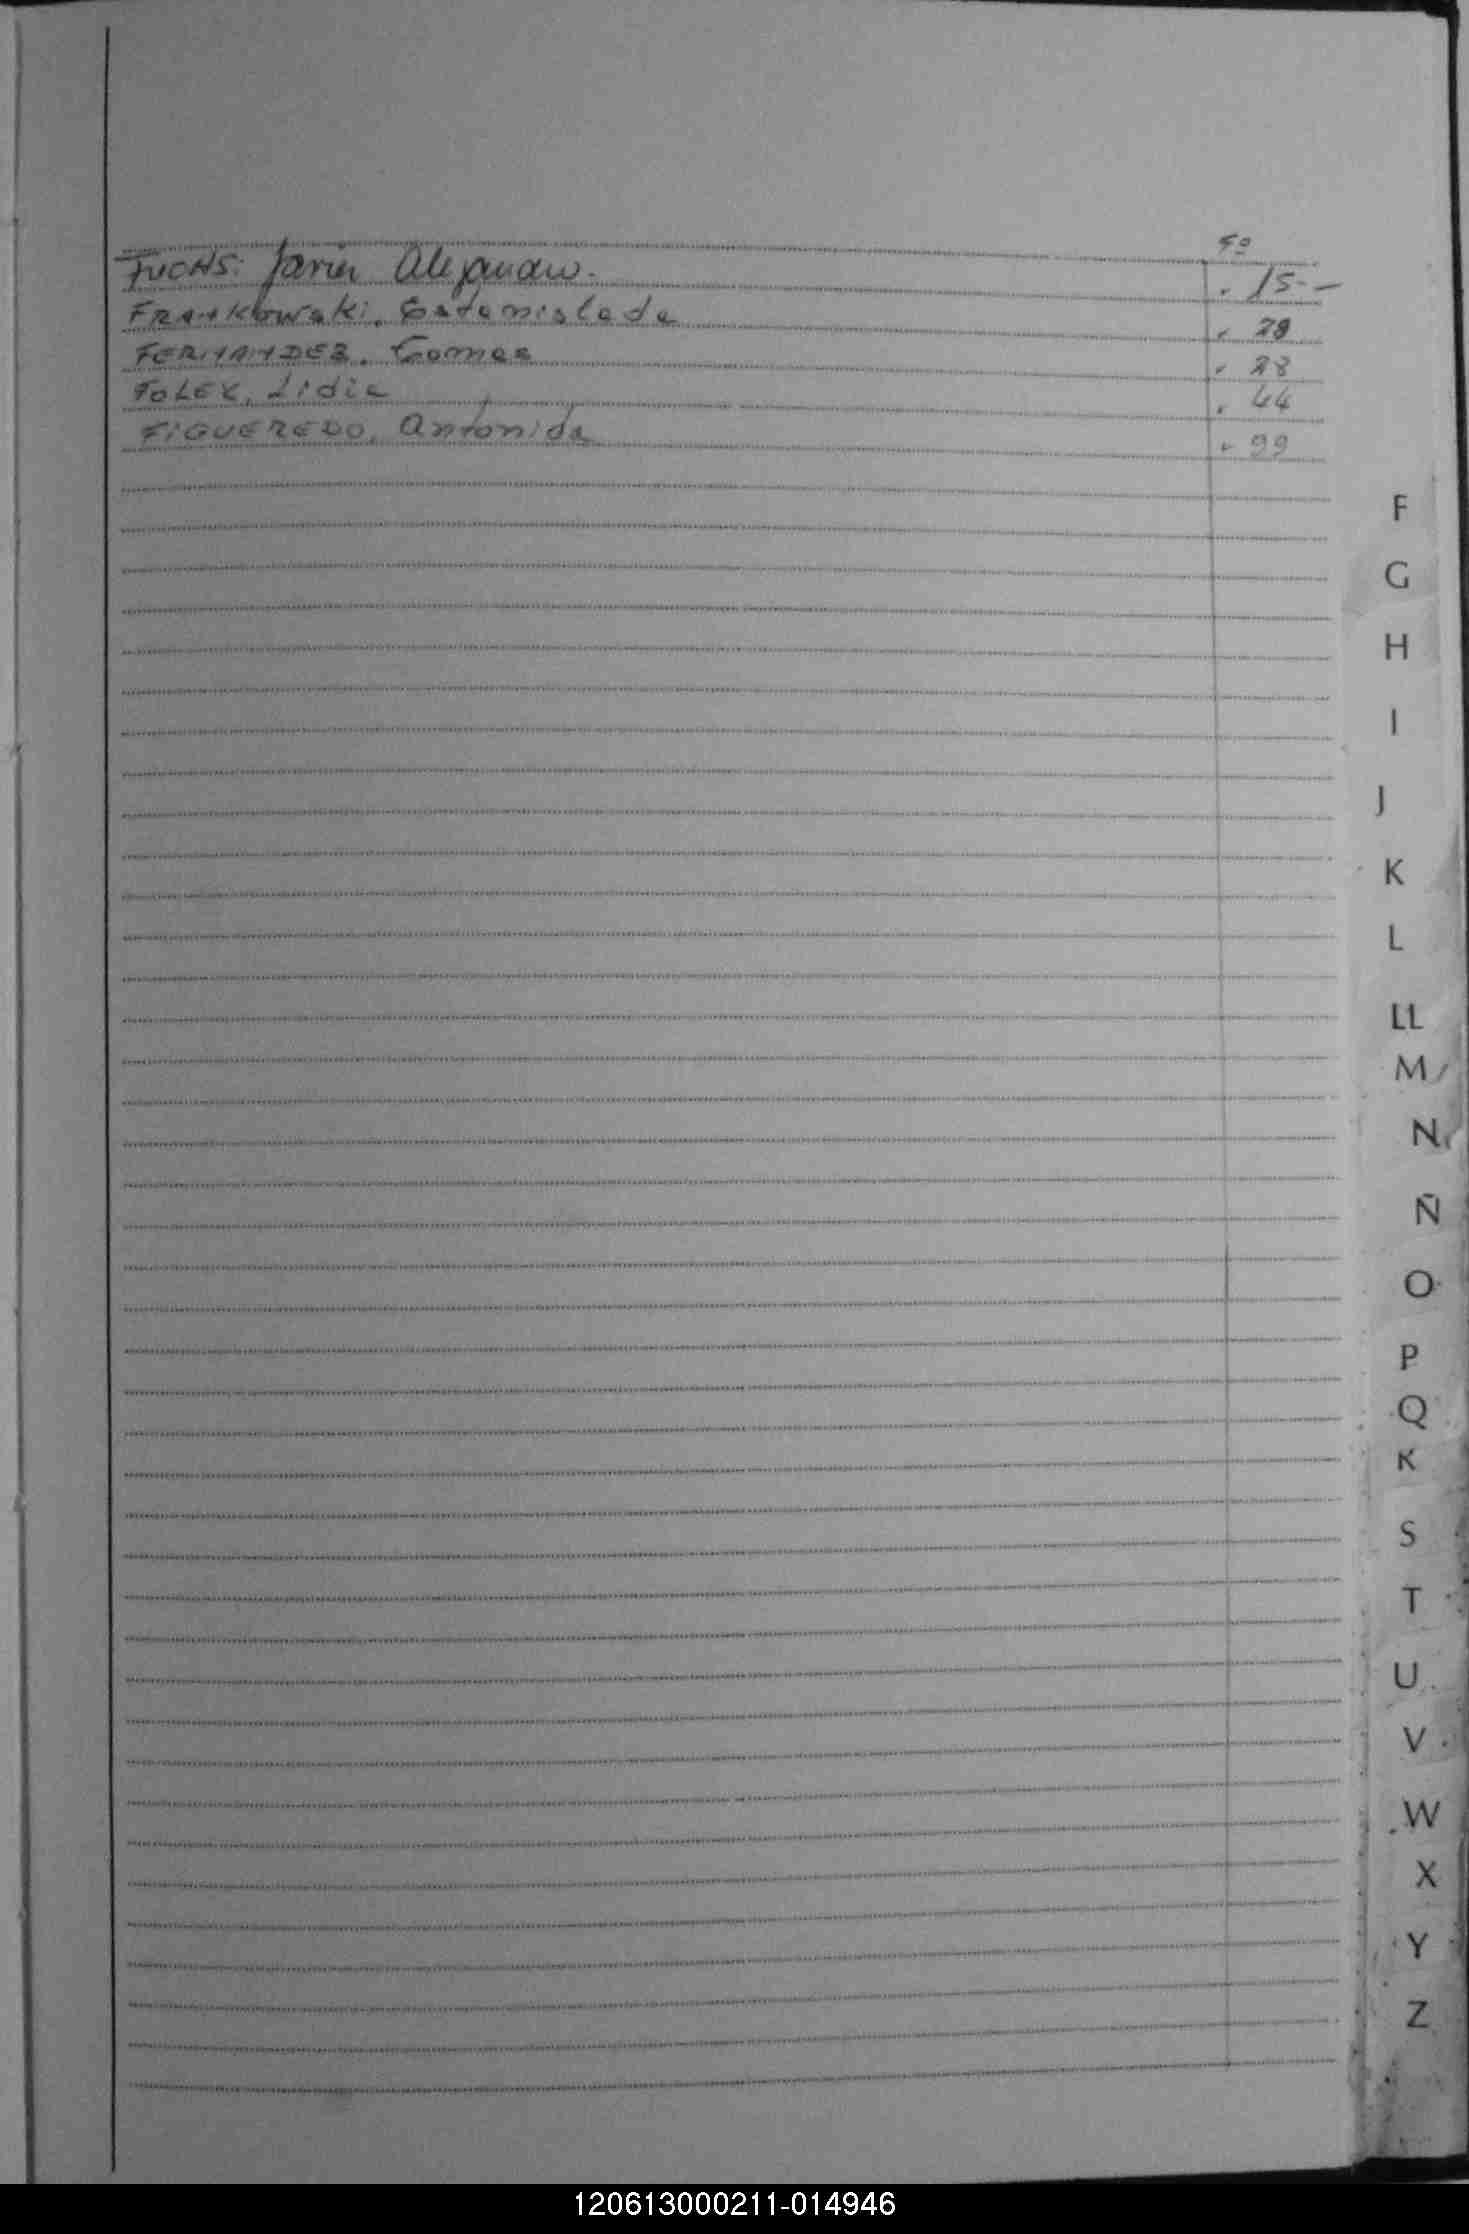 Fº
FUCHS: Javier Alejandro. " 15-
FRANKowski. Estanislada " 28
FERNANDEZ. Gomes " 28
FOLEK. Lidia " 44
FIGUEREDO. Antonida " 99
F
G
H
I
J
K
L
LL
M
N
Ñ
O
P
Q
R
S
T
U
V
W
X
Y
Z
120613000211-014946